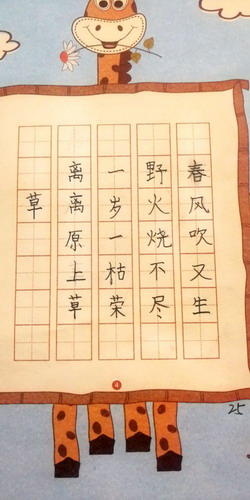 草
离离原上草
一岁一枯荣
野火烧不尽
春风吹又生
4
25